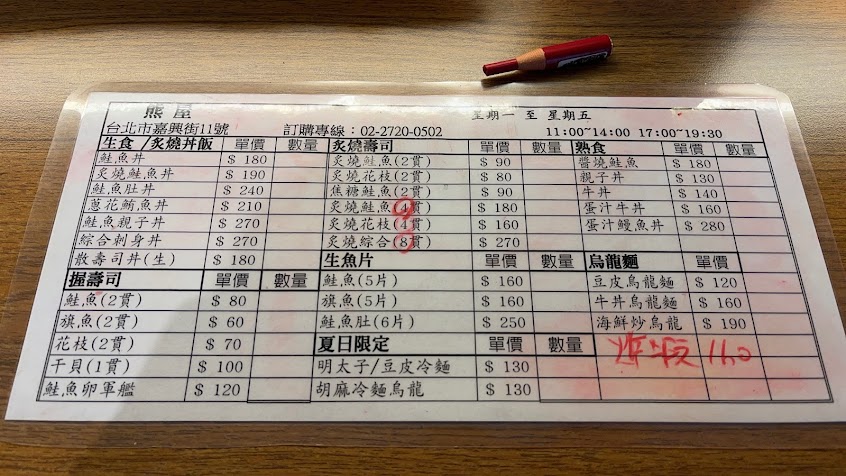 熊屋 星期一 至 星期五
台北市嘉興街11號 訂購專線：02-2720-0502 11:00~14:00 17:00~19:30
生食 /炙燒丼飯 單價 數量 炙燒壽司 單價 數量 熟食 單價 數量
鮭魚丼 $ 180 炙燒鮭魚(2貫) $ 90 醬燒鮭魚 $ 180
炙燒鮭魚丼 $ 190 炙燒花枝(2貫) $ 80 親子丼 $ 130
鮭魚肚丼 $ 240 焦糖鮭魚(2貫) $ 90 牛丼 $ 140
蔥花鮪魚丼 $ 210 炙燒鮭魚(4貫) $ 180 蛋汁牛丼 $ 160
鮭魚親子丼 $ 270 炙燒花枝(4貫) $ 160 蛋汁鰻魚丼 $ 280
綜合刺身丼 $ 270 炙燒綜合(8貫) $ 270
散壽司丼(生) $ 180 生魚片 單價 數量 烏龍麵 單價
握壽司 單價 數量 鮭魚(5片) $ 160 豆皮烏龍麵 $ 120
鮭魚(2貫) $ 80 旗魚(5片) $ 160 牛丼烏龍麵 $ 160
旗魚(2貫) $ 60 鮭魚肚(6片) $ 250 海鮮炒烏龍 $ 190
花枝(2貫) $ 70 夏日限定 單價 數量 160
干貝(1貫) $ 100 明太子/豆皮冷麵 $ 130
鮭魚卵軍艦 $ 120 胡麻冷麵烏龍 $ 130